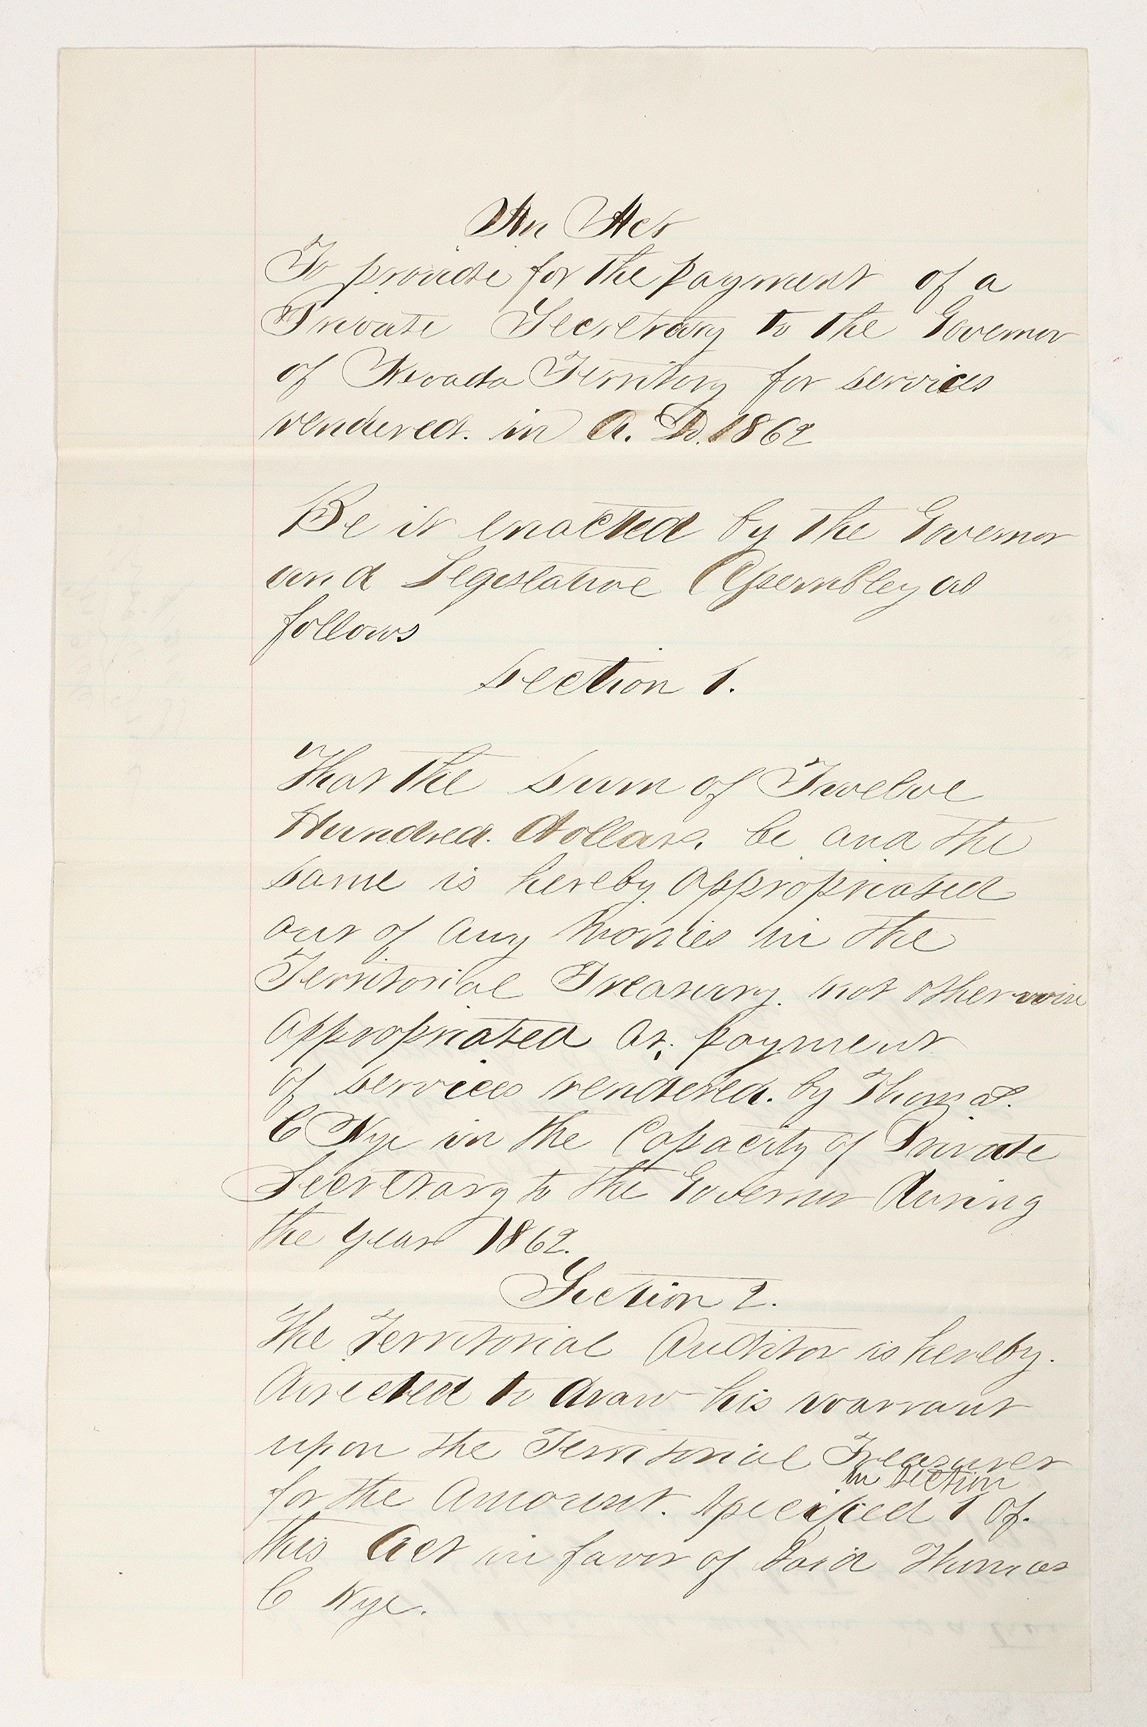 An Act
To provide for the payment of a
Private Secretary to the Governor
of Nevada Territory for services
rendered. in A. D. 1862
Be it enacted by the Governor
and Legislative Assembley as
follows
Section 1.
That the Sum of Twelve
Hundred. Dollars, be and the
same is hereby appropriated
out of any Monies in the
Territorial Treasury. not otherwise
appropriated as, payment
of services rendered. by Thomas.
C Nye in the Capacity of Private
Secretary to the Governor during
the year 1862.
Section 2.
The Territorial Auditor is hereby.
directed to draw his warrant
upon the Territorial Treasurer
in section
for the Amount. specified 1 of.
this Act in favor of Said Thomas
C Nye.